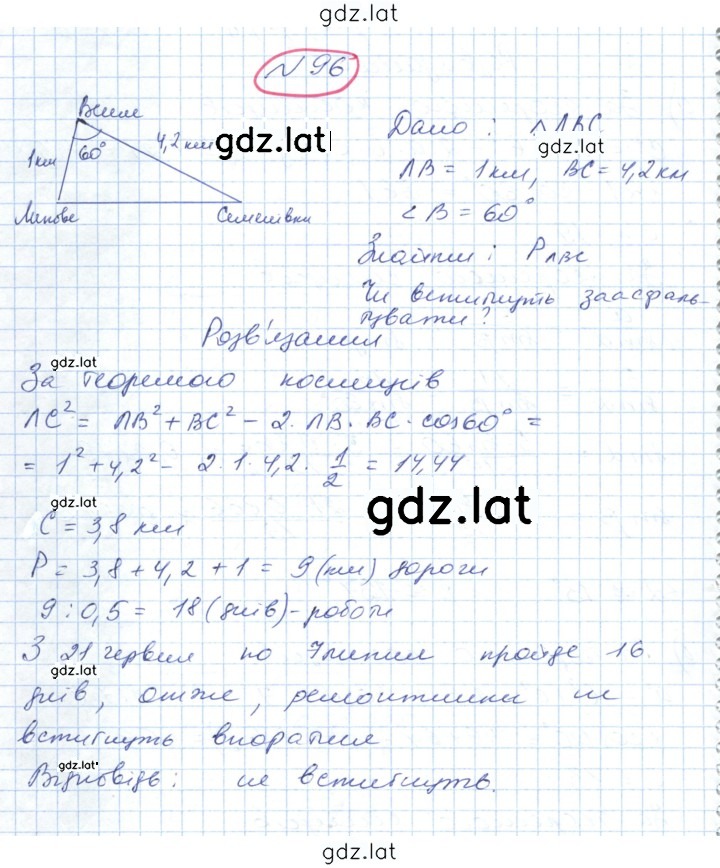 gdz.lat
№ 96
Веселе
1км
60°
4,2 км
gdz.lat
Липове
Семенівка
Дано: △ЛВС
gdz.lat
ЛВ = 1км, ВС = 4,2км
∠В = 60°
Знайти: PЛВС
Чи встигнуть заасфаль-
тувати?
Розв'язання
gdz.lat
За теоремою косинусів
ЛС² = ЛВ² + ВС² - 2·ЛВ·ВС·cos60° =
= 1² + 4,2² - 2·1·4,2·1/2 = 14,44
gdz.lat
gdz.lat
С = 3,8 км
Р = 3,8 + 4,2 + 1 = 9(км) дороги
9 : 0,5 = 18 (днів) - роботи
З 21 червня по 7липня пройде 16
gdz.lat
днів, отже, ремонтники не
встигнуть впоратися
gdz.lat
Відповідь: не встигнуть.
gdz.lat